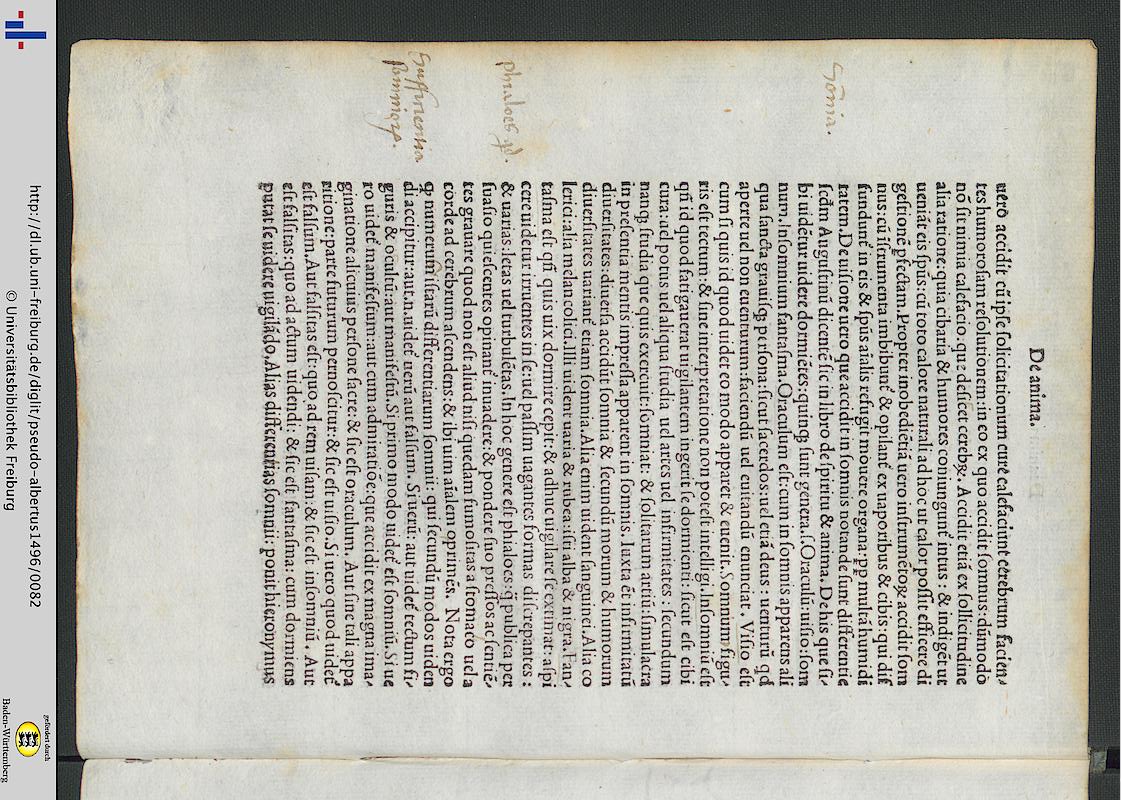 De anima.
uero accidit cū ipse solicitationum cure calefaciunt cerebrum facien/
tes humorosam resolutionem: in eo ex quo accidit somnus: dūmodo
nō sit nimia calefacio. que desiccet cerebꝝ. Accidit etiā ex sollicitudine
alia ratione: quia cibaria & humores coniungunt̄ intus: & indigēt ut
ueniāt eis spūs: cū toto calore naturali ad hoc ut calor possit efficere di
gestionē pfectam. Propter inobediētiā uero instrumētoꝝ accidit som
nus: cū īstrumenta imbibunt̄ & opilant̄ ex uaporibus & cibis: qui dif
fundunt̄ in eis & spūs aīalis refugit mouere organa: pp multā humidi
tatem. De uisione uero que accidit in somnis notande sunt differentie
scdm Augustinū dicentē sic in libro de spiritu & anima. De his que si
bi uidētur uidere dormiētes: quinqꝫ sunt genera. s. Oraculū: uisio: som
num: Insomnium fantasma. Oraculum est: cum in somnis apparens ali
qua sancta grauisqꝫ persona: sicut sacerdos: uel etiā deus: uenturū qd
aperte uel non euenturum: faciendū uel euitandū enunciat. Visio est
cum si quis id quod uidet eo modo apparet & euenit. Somnium figu
ris est tectum: & sine interpretatione non potest intelligi. Insomniū est
qñ id quod fatigauerat uigilantem ingerit se dormienti: sicut est cibi
cura: uel potus uel aliqua studia uel artes uel infirmitates: secundum
nanqꝫ studia que quis exercuit: somniat: & solitarum artiū: simulacra
in presentia mentis impressa apparent in somnis. Iuxta ēt infirmitatū
diuersitates: diuersa accidūt somnia & secundū morum & humorum
diuersitates uariant̄ etiam somnia. Alia enim uident sanguinei. Alia co
lerici: alia melancolici. Illi uident uaria & rubea: isti alba & nigra. Fan/
tasma est qñ quis uix dormire cepit: & adhuc uigilare se extimat: aspi
cere uidetur irruentes in se: uel passim uagantes formas discrepantes:
& uarias: letas uel turbulētas. In hoc genere est phialoes: q̄ publica per
suasio quiescentes opinant̄ inuadere: & pondere suo pressos ac sentē/
tes grauare quod non est aliud nisi quedam fumositas a stomaco uel a
corde ad cerebrum ascendens: & ibi uim aīalem oprimēs. Nota ergo
ꝙ numerum istarū differentiarum somnii: qui secundū modos uiden
di accipitur: aut. n. uidet̄ uerū aut falsum. Si uerū: aut uidet̄ tectum fi/
guris & ocultū: aut manifestū. Si primo modo uidet̄ est somniū. Si ue
ro uidet̄ manifestum: aut cum admiratiōe: que accidit ex magna ima/
ginatione alicuius persone sacre: & sic est oraculum. Aut sine tali appa
ritione: parte futurum pernoscitur: & sic est uisio. Si uero quod uidet̄
est falsum. Aut falsitas est: quo ad rem uisam: & sic est insomniū. Aut
est falsitas: quo ad actum uidendi: & sic est fantasma: cum dormiens
putat se uidere uigilādo. Alias differentias somnii: ponit hieronymus
Somnia.
phialoes qd.
differentia
somniorꝝ.
http://dl.ub.uni-freiburg.de/diglit/pseudo-albertus1496/0082
© Universitätsbibliothek Freiburg
gefördert durch
Baden-Württemberg